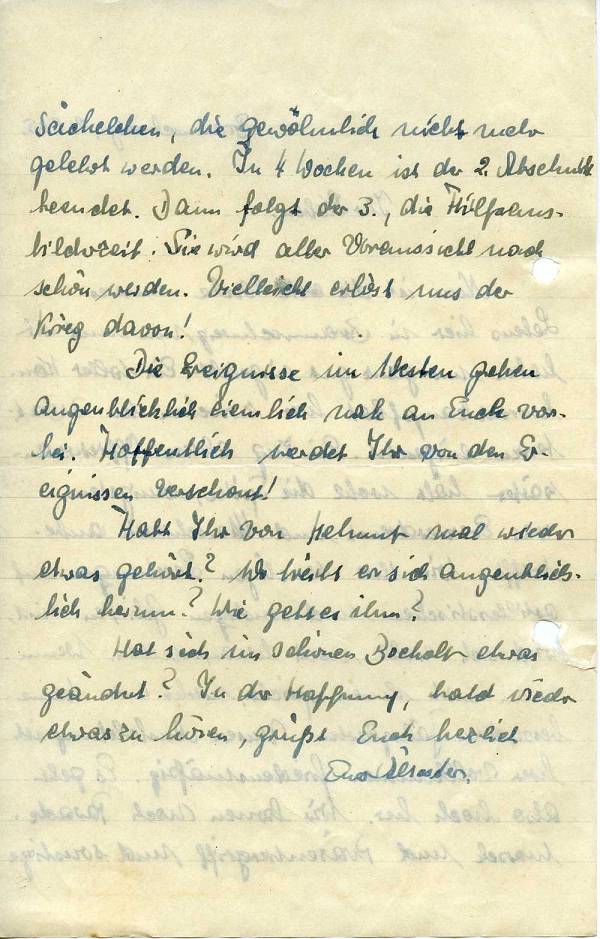 Sächelchen, die gewöhnlich nicht mehr
gelehrt werden. In 4 Wochen ist der 2. Abschnitt
beendet. Dann folgt der 3., die Hilfsaus-
bildozeit. Sie wird aller Voraussicht nach
schön werden. Vielleicht erlöst uns der
Krieg davon!
Die Ereignisse im Westen gehen
augenblicklich ziemlich nah an Euch vor-
bei. Hoffentlich werdet Ihr von den Er-
eignissen verschont!
Habt Ihr von Helmut mal wieder
etwas gehört? Wo treibt er sich augenblick-
lich herum? Wie geht es ihm?
Hat sich im schönen Bocholt etwas
geändert? In der Hoffnung, bald wieder
etwas zu hören, grüßt Euch herzlich
Euer